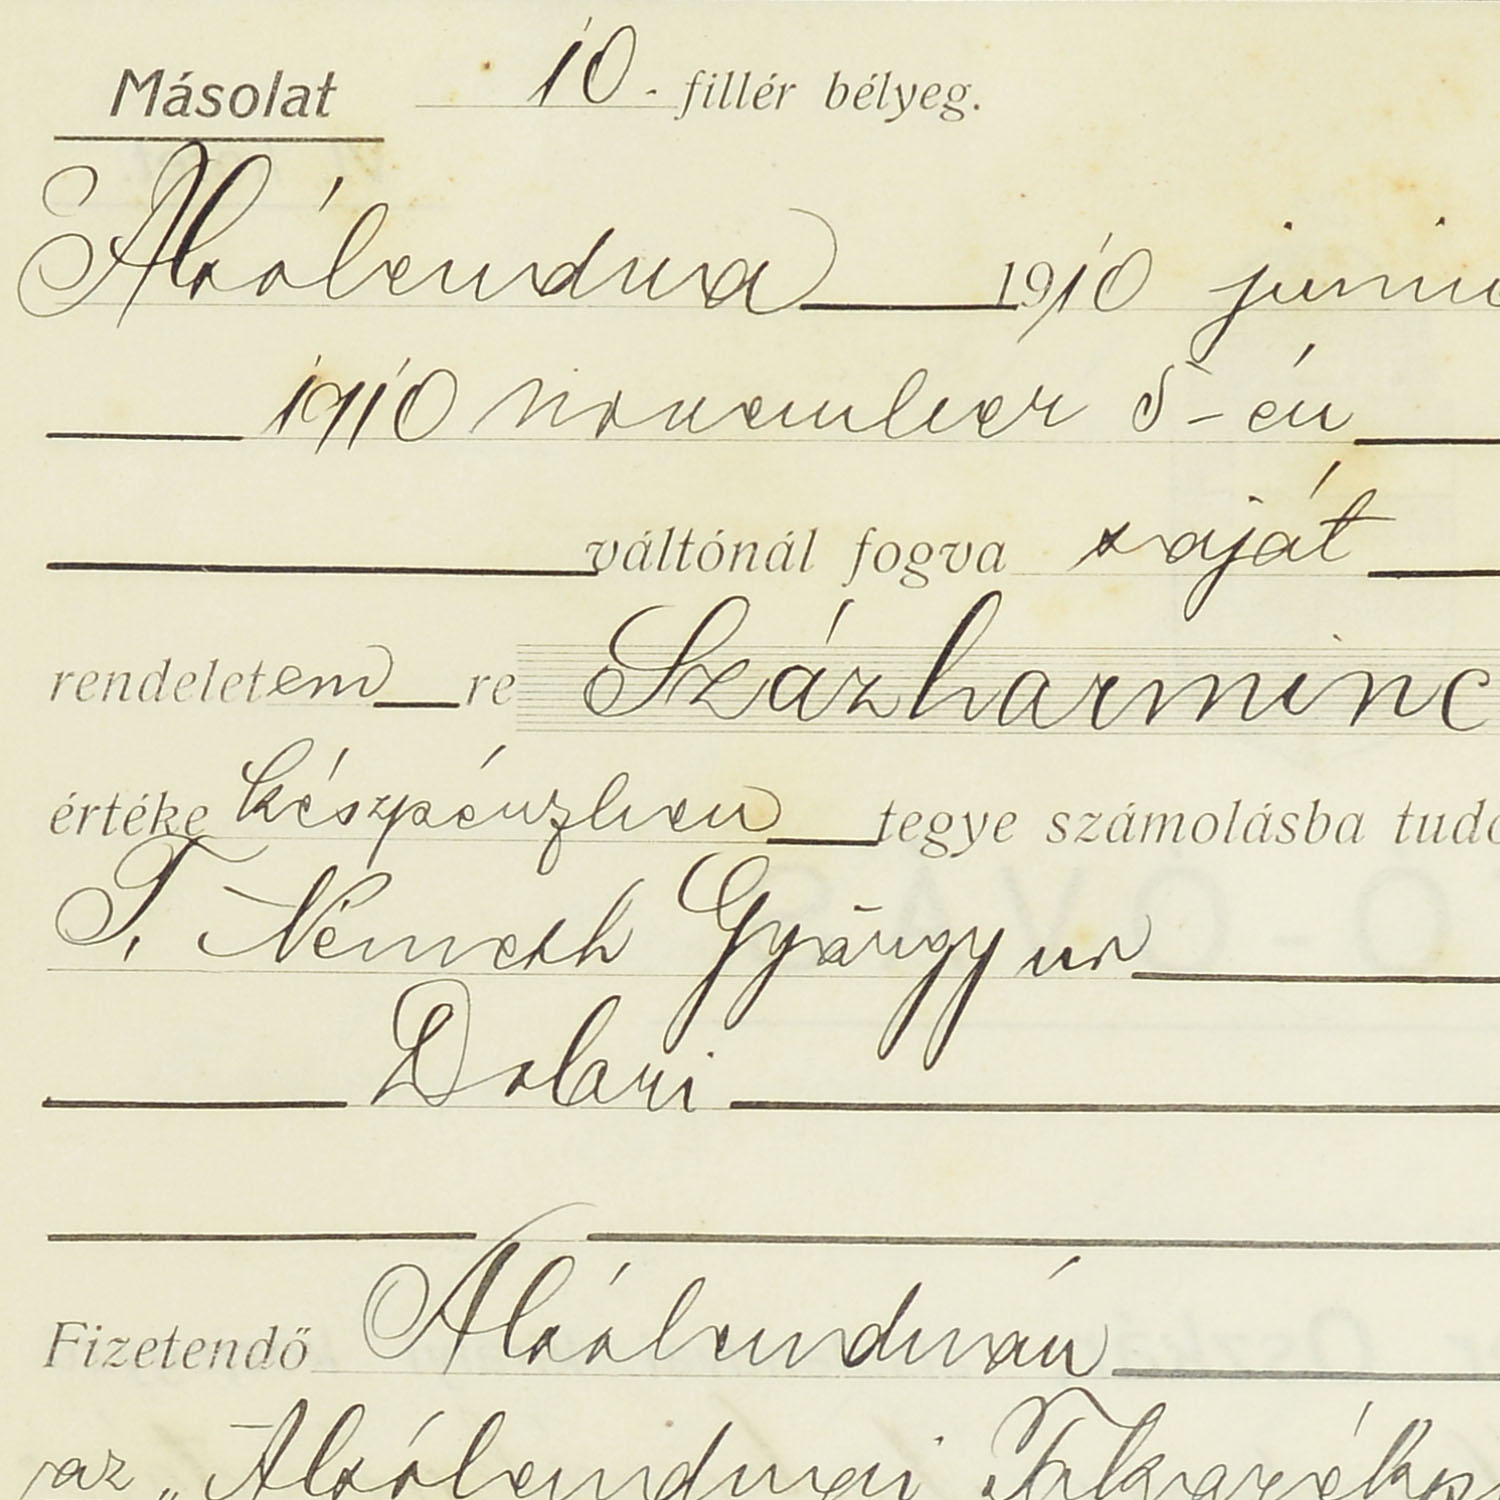 Másolat 10 - fillér bélyeg.
Alsólendva 1910 juniu
1910 november 5-én
váltónál fogva saját
rendeletem re Százharminc
értéke készpénzben tegye számolásba tudo
T. Németh György ur
Dolari
Fizetendő Alsólendván
az „Alsólendvai Takarékp